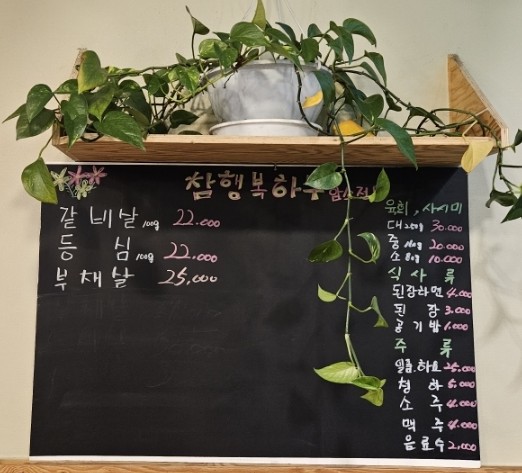 참행복하우 암소전
갈비살 100g 22.000
등심 100g 22.000
부채살 25,000
육회, 사시미
대 200g 30.000
중 20.000
소 10.000
식사류
된장라면 4.000
된장 3.000
공기밥 1.000
주류
일품.화요 25,000
청하 5.000
소주 4.000
맥주 4.000
음료수 2,000